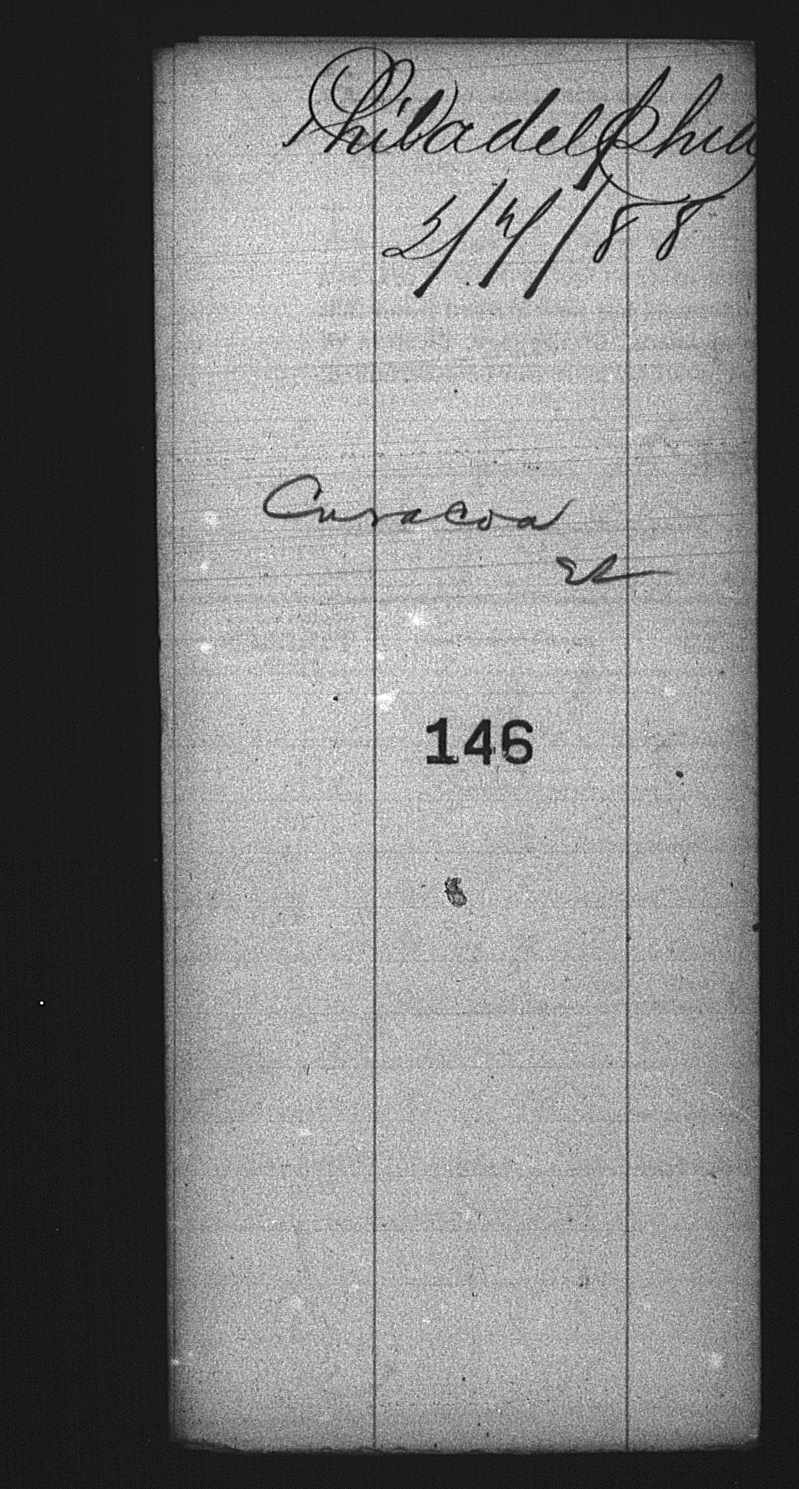 Philadelphia
5/4/88
Curacoa
146